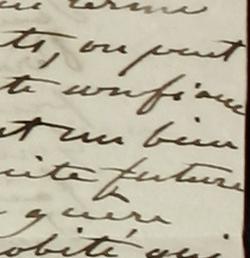 terme
ts, on peut
te confiance
t un bien
uite future
guère
obité, qui